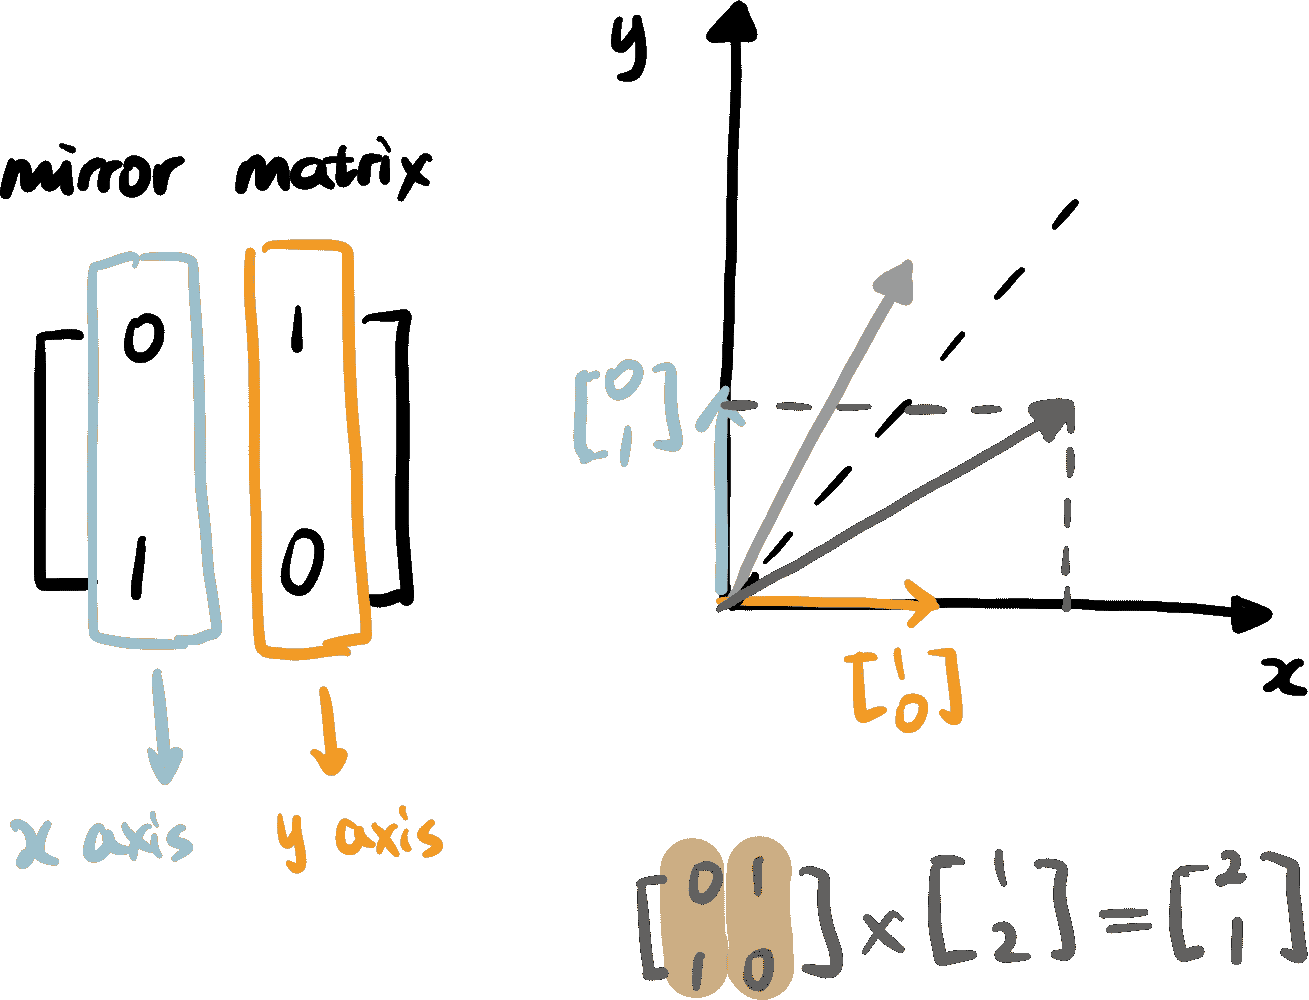 mirror matrix
0 1
1 0
x axis
y axis
y
[0
1]
[1
0]
x
[0 1
1 0] × [1
2] = [2
1]